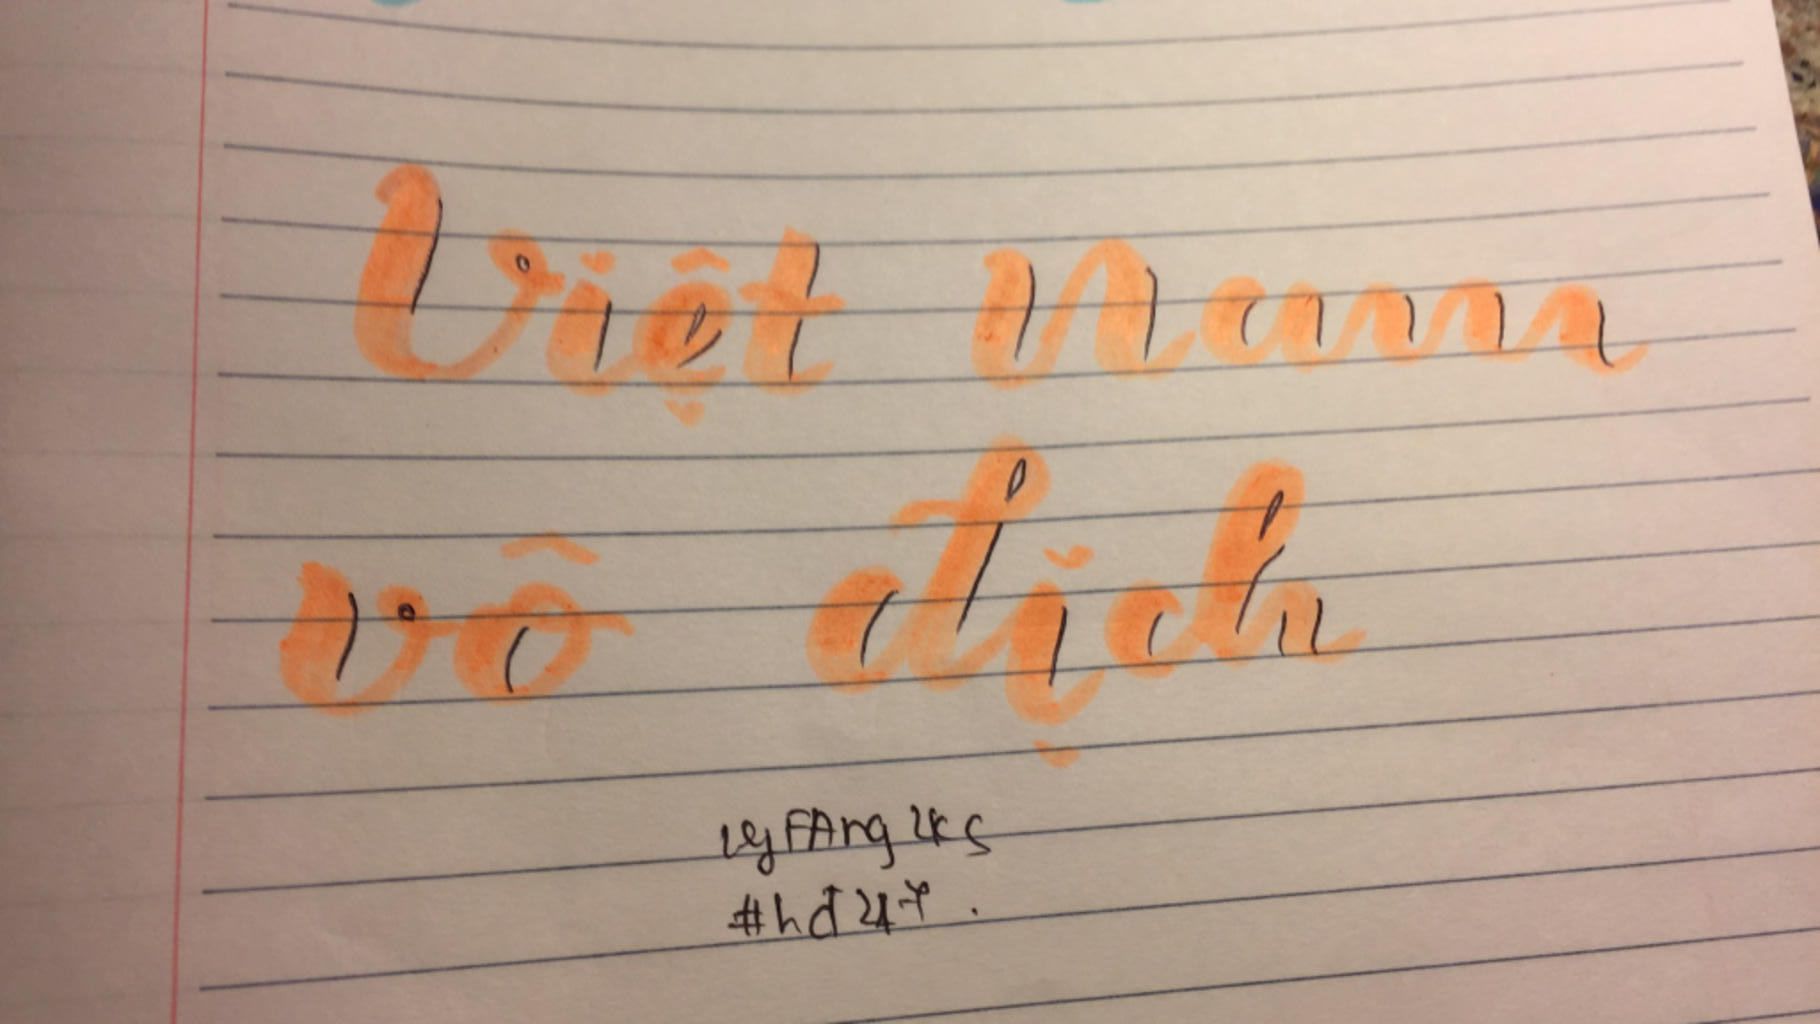 Việt Nam
vô địch
#hđ247.